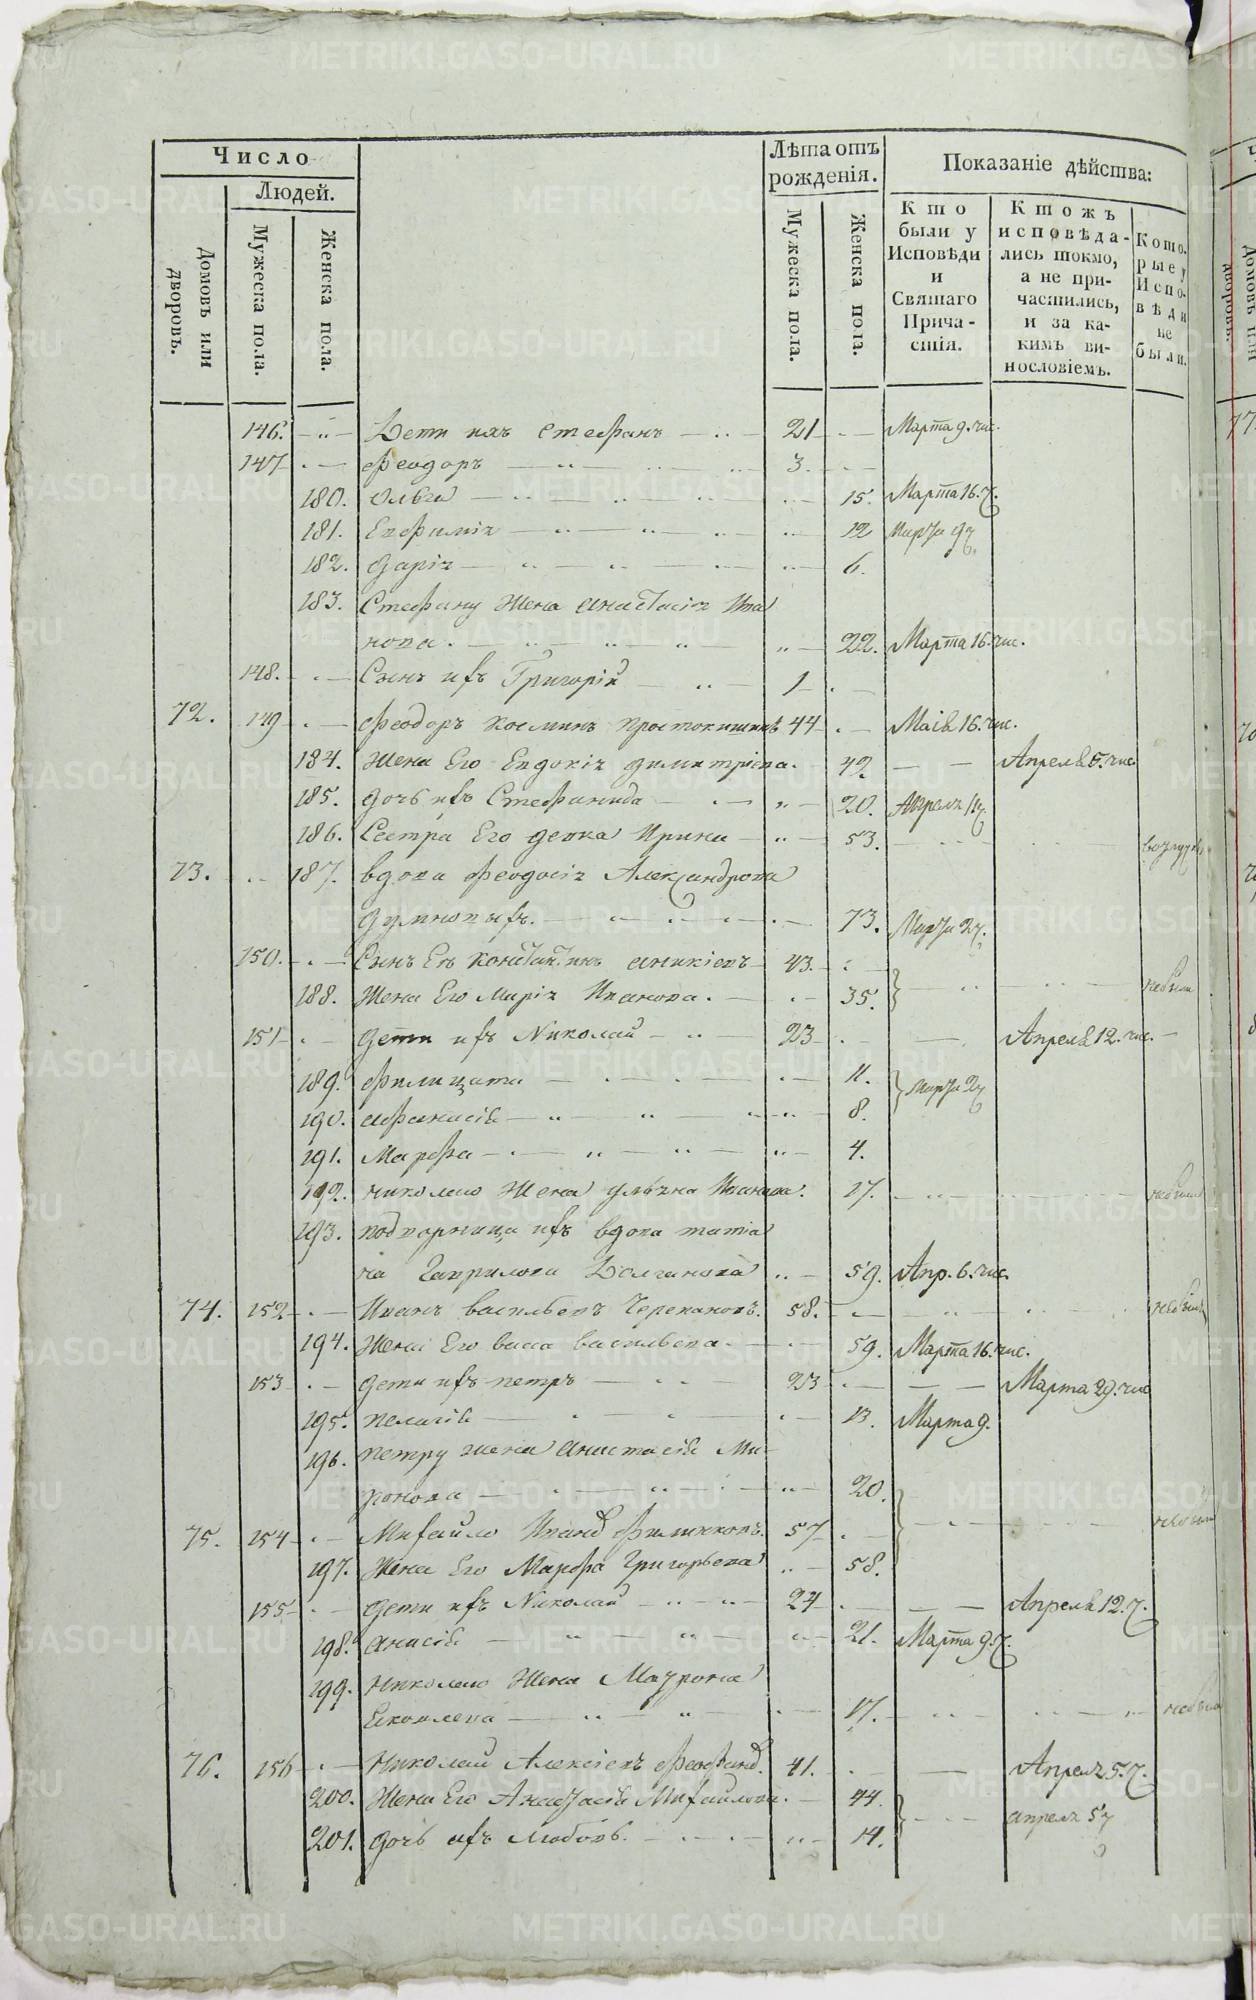 Число
Людей.
Домовъ или дворовъ.
Мужеска пола.
Женска пола.
Лѣта отъ рожденія.
Мужеска пола.
Женска пола.
Показаніе дѣйства:
Кто были у Исповѣди и Святаго Причастія.
Ктожъ исповѣдались токмо, а не причастились, и за какимъ винословіемъ.
Которые у Исповѣди не были.
146. Дети ихъ Стефанъ 21 Марта 9. чис.
147 Феодоръ 3.
180. Ольга 15. Марта 16. ч.
181. Евфимія 12 Марта 9 ч.
182. Дарія 6.
183. Стефану Жена Анастасія Ива
нова. 22. Марта 16. чис.
148. Сынъ ихъ Григорій 1
72. 149 Феодоръ Косминъ Простокишинъ 44 Маіа 16. чис.
184. Жена Его Евдокія Димитріева. 42. Апреля 5. чис.
185. Дочь ихъ Стефанида 20. Апреля 11 ч
186. Сестра Его девка Ирина 53.
73. 187. Вдова Феодосія Александрова
Думновыхъ. 73. Марта 2 ч.
150. Сынъ Ея Константинъ Аникіевъ 43.
188. Жена Его Марія Иванова. 35. небыли
151 Дети ихъ Николай 23 Апреля 12. чис.
189. Филицата 11. Марта 2 ч
190. Афанасіа 8.
191. Марфа 4.
192. Николаю Жена Ульяна Иванова. 17. небыла
193. Подворница ихъ вдова Татіа
на Гаврилова Долганова 59. Апр. 6. чис.
74. 152 Иванъ Васильевъ Черепановъ. 58. небылъ
194. Жена Его Васса Васильева. 59. Марта 16. чис.
153 Дети ихъ Петръ 23 Марта 29. чис
195. Пелагіа 13. Марта 9.
196. Петру жена Анастасіа Ми-
ронова 20.
75. 154 Михайло Иванов Филинковъ. 57 небыли
197. Жена Его Марфа Григорьева 58.
155 Дети ихъ Николай 24 Апреля 12. ч.
198. Анисіа 21. Марта 9. ч.
199. Николаю Жена Маврона
Яковлева 17. небыла
76. 156 Николай Алексіевъ 41. Апреля 5. ч.
200. Жена Его Анастасіа Михайлова. 44. апреля 5 ч
201. Дочь ихъ Любовь. 14.
METRIKI.GASO-URAL.RU